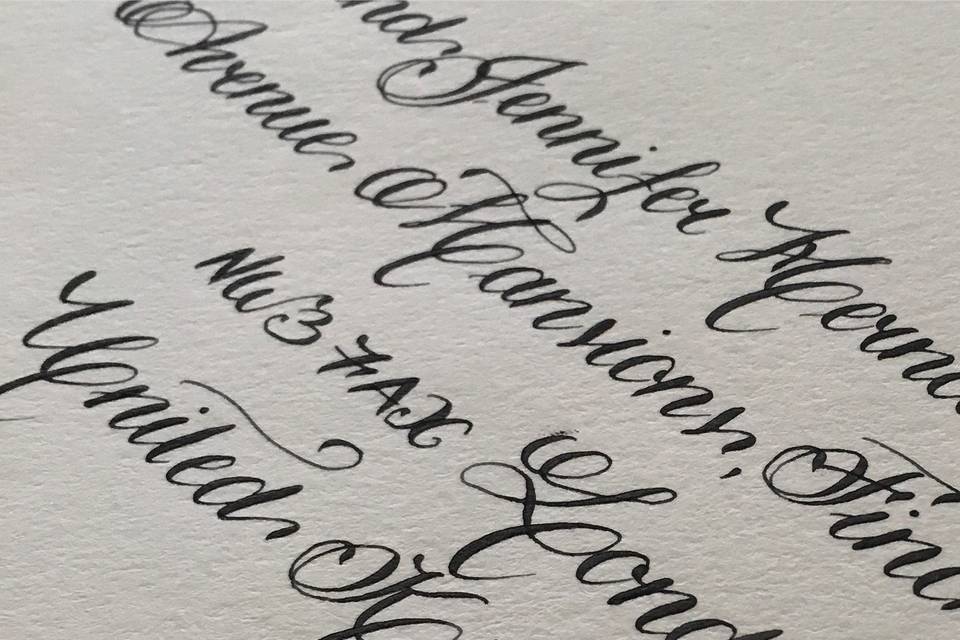 nd Jennifer Hern
Avenue Mansion, Fin
NW3 7AX Lond
United K